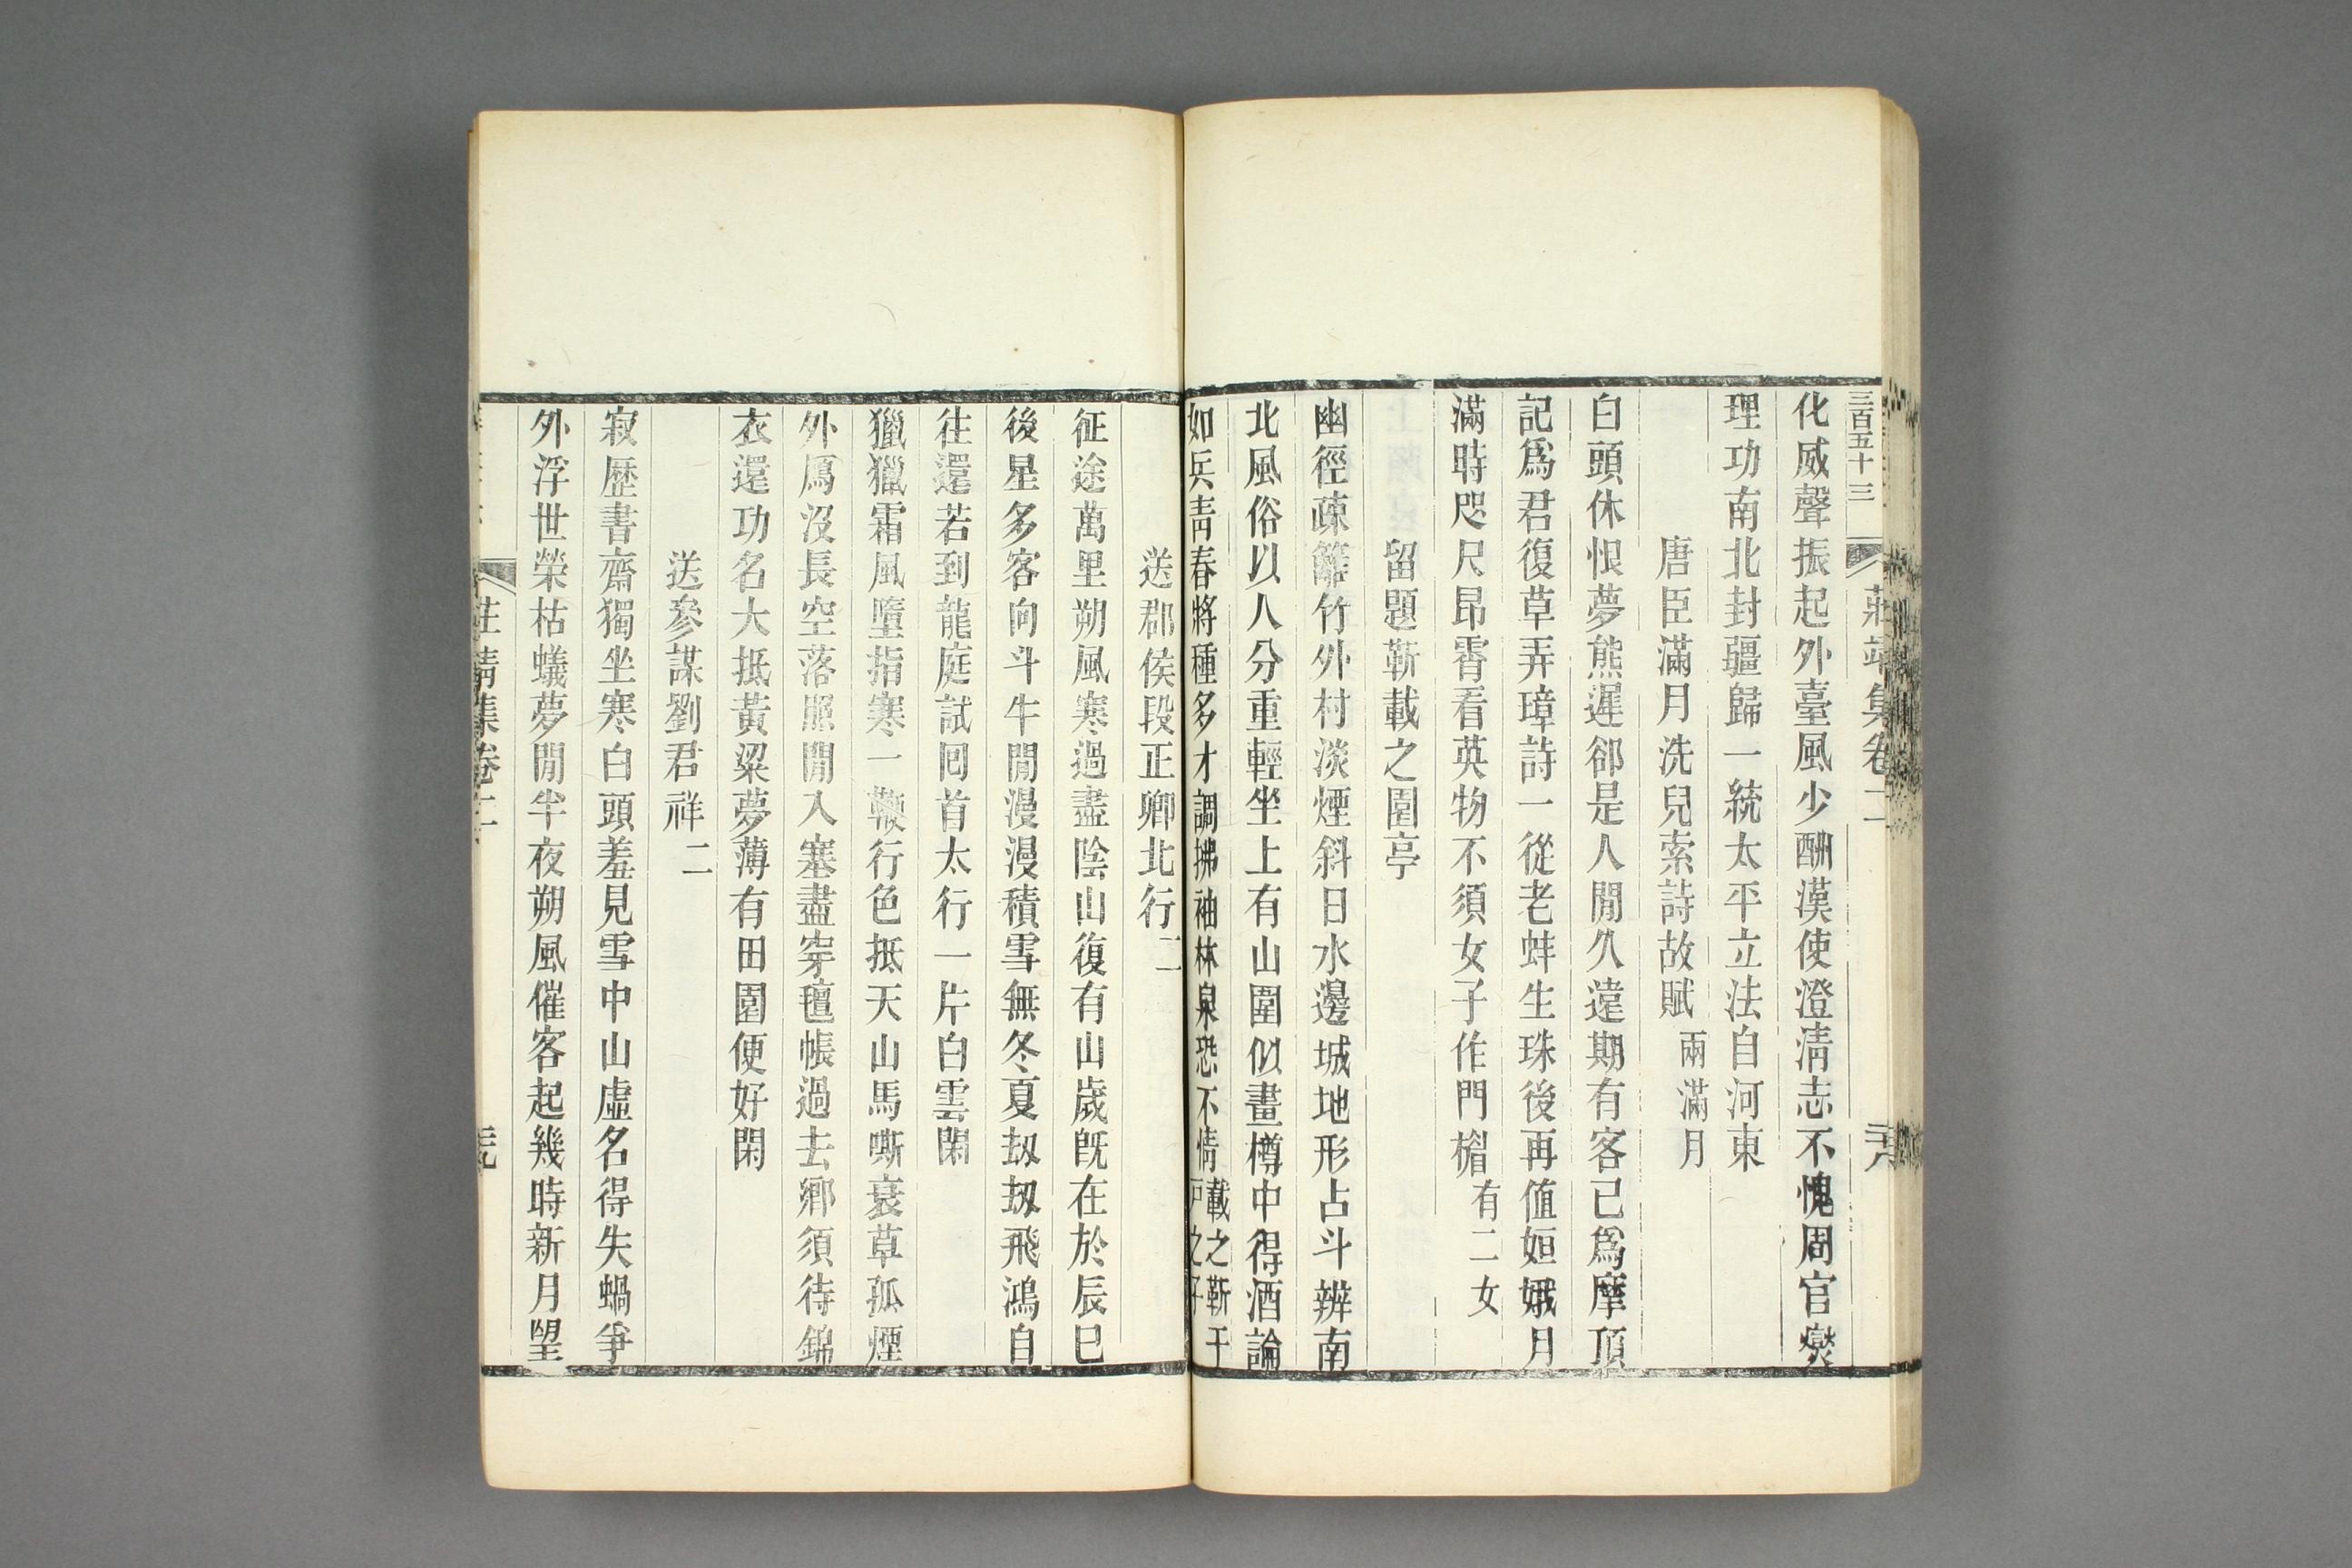 三百五十三 莊靖集卷二
化威聲振起外臺風少酬漢使澄淸志不愧周官燮
理功南北封疆歸一統太平立法自河東
唐臣滿月洗兒索詩故賦兩滿月
白頭休恨夢熊遲郤是人閒久遠期有客已爲摩頂
記爲君復草弄璋詩一從老蚌生珠後再値姮娥月
滿時咫尺昻霄看英物不須女子作門楣有二女
留題靳載之園亭
幽徑疎籬竹外村淡煙斜日水邊城地形占斗辨南
北風俗以人分重輕坐上有山圍似畫樽中得酒論
如兵靑春將種多才調拂袖林泉恐不情載之靳千
戸之子
送郡侯段正卿北行二
征途萬里朔風寒過盡陰山復有山歲旣在於辰巳
後星多客向斗牛閒漫漫積雪無冬夏刼刼飛鴻自
往還若到龍庭試囘首太行一片白雲閑
獵獵霜風墮指寒一鞭行色抵天山馬嘶衰草孤煙
外鴈沒長空落照閒入塞盡穿氊帳過去鄉須待錦
衣還功名大抵黃粱夢薄有田園便好閑
送參謀劉君祥二
寂歷書齋獨坐寒白頭羞見雪中山虛名得失蝸爭
外浮世榮枯蟻夢閒半夜朔風催客起幾時新月望
莊靖集卷二